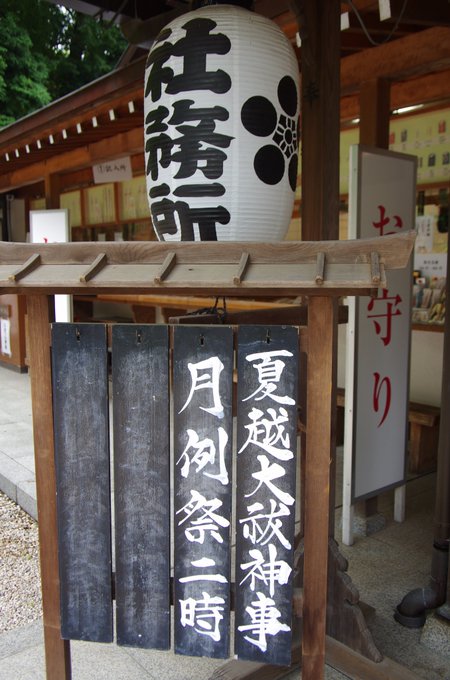 社務所
お守り
夏越大祓神事
月例祭二時